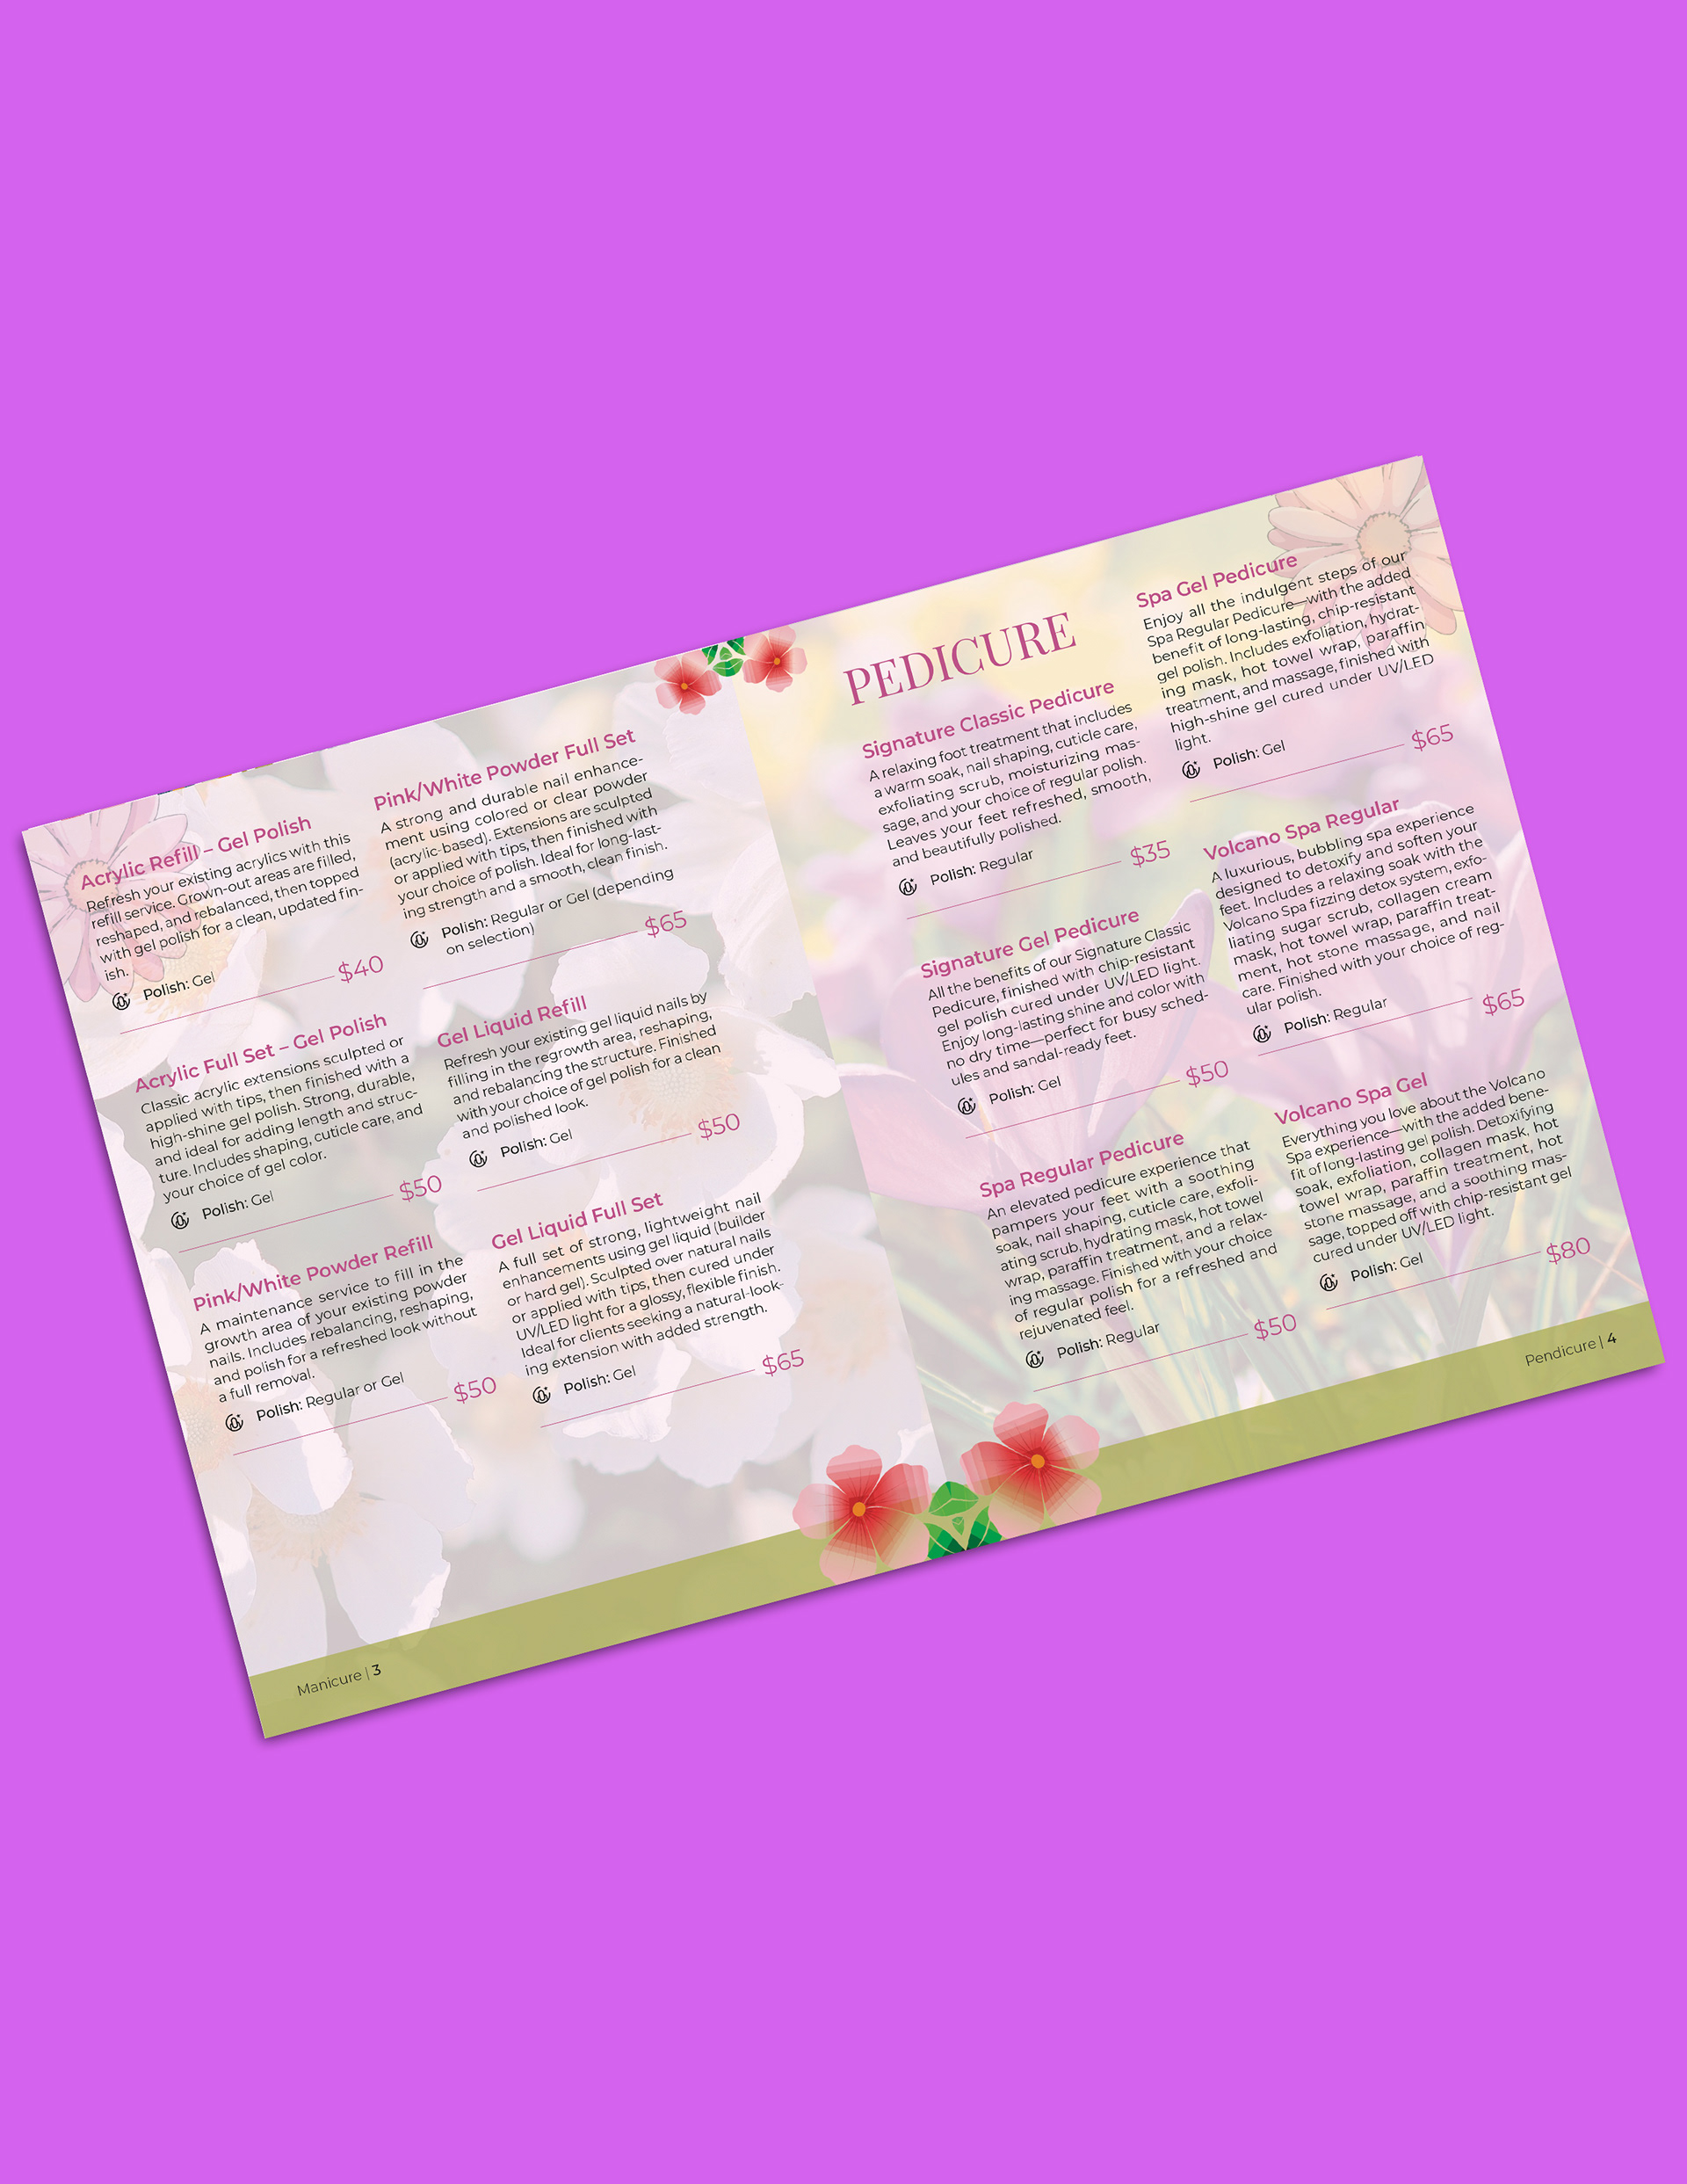 Acrylic Refill – Gel Polish
Refresh your existing acrylics with this
refill service. Grown-out areas are filled,
reshaped, and rebalanced, then topped
with gel polish for a clean, updated fin-
ish.
Polish: Gel
$40
Acrylic Full Set – Gel Polish
Classic acrylic extensions sculpted or
applied with tips, then finished with a
high-shine gel polish. Strong, durable,
and ideal for adding length and struc-
ture. Includes shaping, cuticle care, and
your choice of gel color.
Polish: Gel
$50
Pink/White Powder Refill
A maintenance service to fill in the
growth area of your existing powder
nails. Includes rebalancing, reshaping,
and polish for a refreshed look without
a full removal.
Polish: Regular or Gel
$50
Pink/White Powder Full Set
A strong and durable nail enhance-
ment using colored or clear powder
(acrylic-based). Extensions are sculpted
or applied with tips, then finished with
your choice of polish. Ideal for long-last-
ing strength and a smooth, clean finish.
Polish: Regular or Gel (depending
on selection)
$65
Gel Liquid Refill
Refresh your existing gel liquid nails by
filling in the regrowth area, reshaping,
and rebalancing the structure. Finished
with your choice of gel polish for a clean
and polished look.
Polish: Gel
$50
Gel Liquid Full Set
A full set of strong, lightweight nail
enhancements using gel liquid (builder
or hard gel). Sculpted over natural nails
or applied with tips, then cured under
UV/LED light for a glossy, flexible finish.
Ideal for clients seeking a natural-look-
ing extension with added strength.
Polish: Gel
$65
Manicure | 3
PEDICURE
Signature Classic Pedicure
A relaxing foot treatment that includes
a warm soak, nail shaping, cuticle care,
exfoliating scrub, moisturizing mas-
sage, and your choice of regular polish.
Leaves your feet refreshed, smooth,
and beautifully polished.
Polish: Regular
$35
Signature Gel Pedicure
All the benefits of our Signature Classic
Pedicure, finished with chip-resistant
gel polish cured under UV/LED light.
Enjoy long-lasting shine and color with
no dry time—perfect for busy sched-
ules and sandal-ready feet.
Polish: Gel
$50
Spa Regular Pedicure
An elevated pedicure experience that
pampers your feet with a soothing
soak, nail shaping, cuticle care, exfoli-
ating scrub, hydrating mask, hot towel
wrap, paraffin treatment, and a relax-
ing massage. Finished with your choice
of regular polish for a refreshed and
rejuvenated feel.
Polish: Regular
$50
Spa Gel Pedicure
Enjoy all the indulgent steps of our
Spa Regular Pedicure—with the added
benefit of long-lasting, chip-resistant
gel polish. Includes exfoliation, hydrat-
ing mask, hot towel wrap, paraffin
treatment, and massage, finished with
high-shine gel cured under UV/LED
light.
Polish: Gel
$65
Volcano Spa Regular
A luxurious, bubbling spa experience
designed to detoxify and soften your
feet. Includes a relaxing soak with the
Volcano Spa fizzing detox system, exfo-
liating sugar scrub, collagen cream
mask, hot towel wrap, paraffin treat-
ment, hot stone massage, and nail
care. Finished with your choice of reg-
ular polish.
Polish: Regular
$65
Volcano Spa Gel
Everything you love about the Volcano
Spa experience—with the added bene-
fit of long-lasting gel polish. Detoxifying
soak, exfoliation, collagen mask, hot
towel wrap, paraffin treatment, hot
stone massage, and a soothing mas-
sage, topped off with chip-resistant gel
cured under UV/LED light.
Polish: Gel
$80
Pendicure | 4